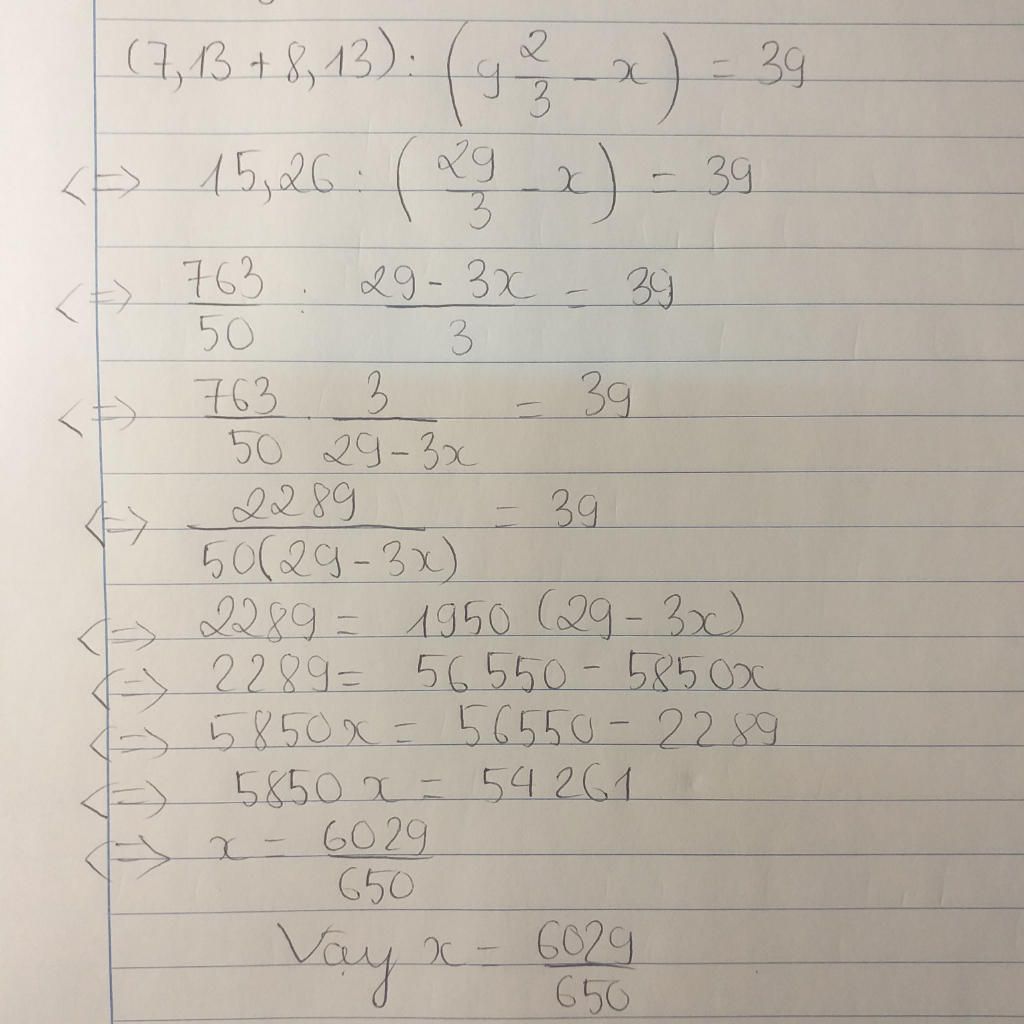 (7,13 + 8,13) : (9 2/3 - x) = 39
<=> 15,26 : (29/3 - x) = 39
<=> 763/50 : (29 - 3x)/3 = 39
<=> 763/50 . 3/(29 - 3x) = 39
<=> 2289/(50(29 - 3x)) = 39
<=> 2289 = 1950 (29 - 3x)
<=> 2289 = 56 550 - 5850x
<=> 5850x = 56550 - 2289
<=> 5850 x = 54 261
<=> x = 6029/650
Vậy x = 6029/650